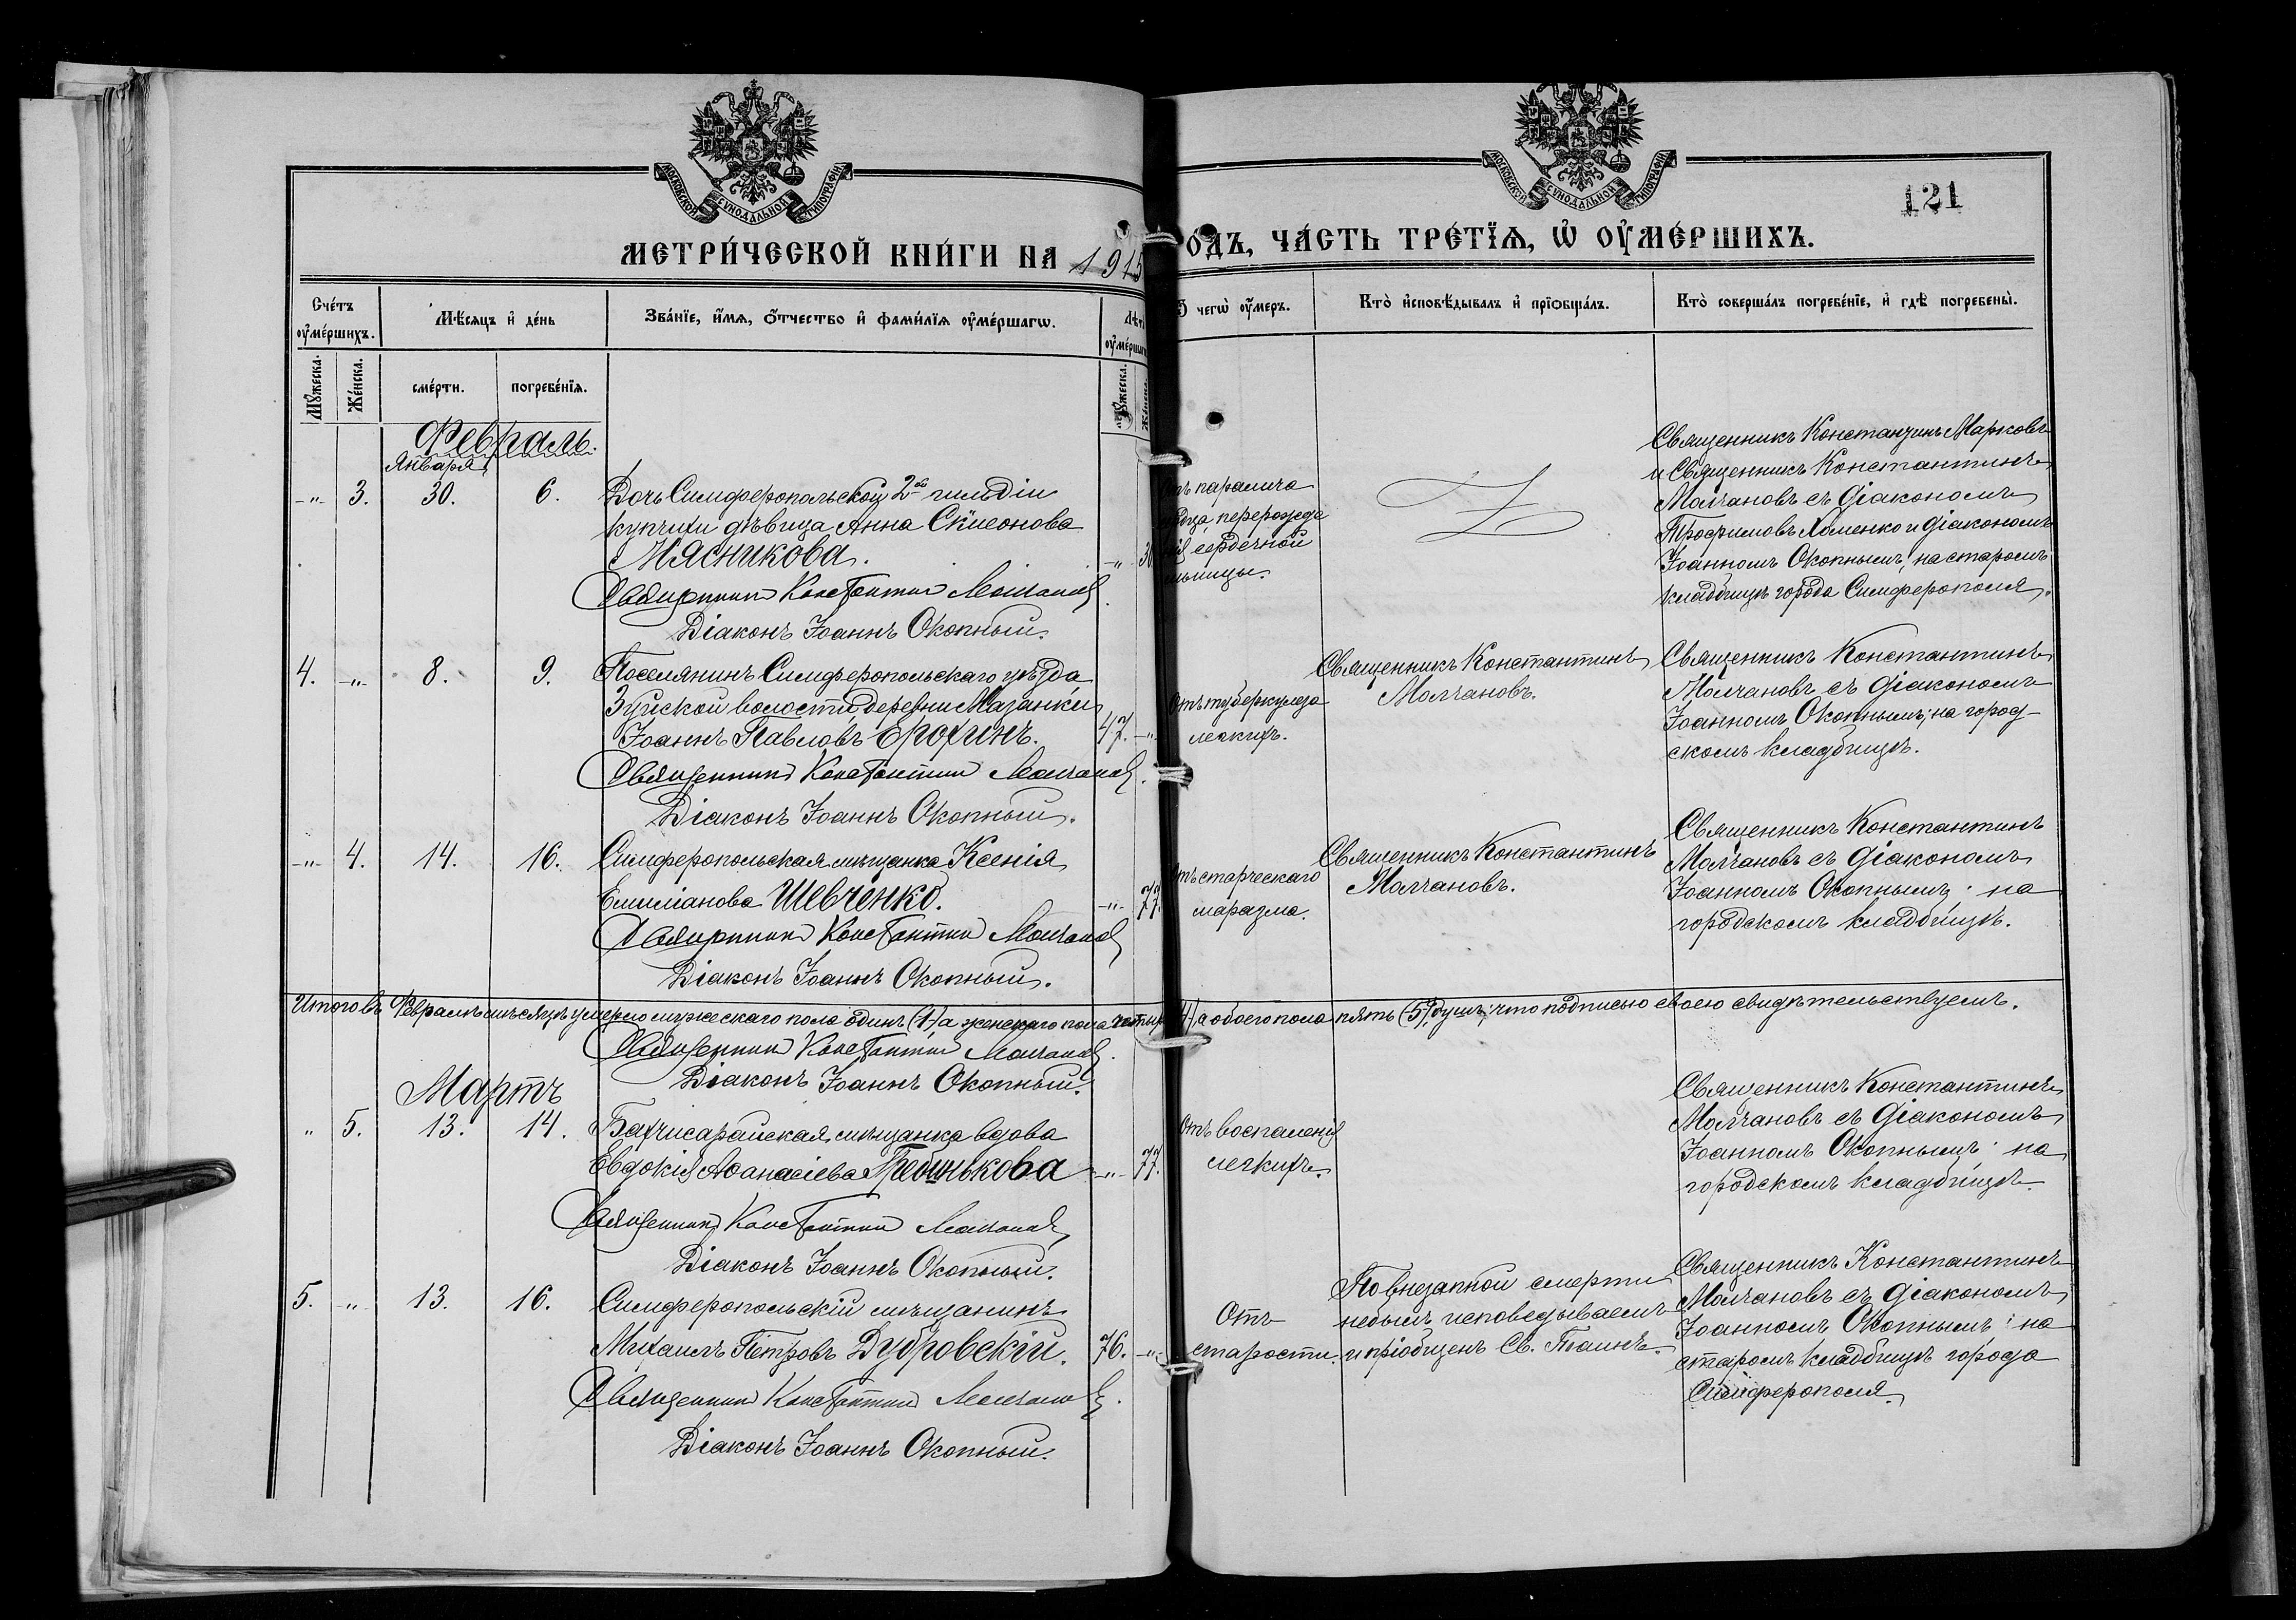 МОСКОВСКОЙ СѴНОДАЛЬНОЙ ТИПОГРАФІИ
МОСКОВСКОЙ СѴНОДАЛЬНОЙ ТИПОГРАФІИ
121
МЕТРИ́ЧЕСКОЙ КНИ́ГИ НА 1915
ОДЪ, ЧА́СТЬ ТРЕ́ТІѦ, Ѡ ОУМЕ́РШИХЪ.
Сче́тъ оуме́ршихъ.
Мѣсѧцъ и де́нь
Зва́нїе, и́мѧ, о́тчество и фами́лїѧ оуме́ршагѡ.
Лѣт
оуме́ршаг
чегѡ оу́меръ.
Кто̀ исповѣ́дывалъ и прїѡбща́лъ.
Кто̀ соверша́лъ погребе́нїе, и гдѣ̀ погребены̀.
Мꙋжеска.
Же́нска.
сме́рти.
погребе́нїѧ.
Мꙋжеска.
Февраль.
Января
-"- 3. 30. 6.
Дочь Симферопольской 2ой гильдіи
купчихи дѣвица Анна Симонова
Мясникова.
Священникъ Константинъ Молчановъ
Діаконъ Іоаннъ Окопный.
паралича
сердца, перерожде
сердечной
мышцы.
Священникъ Константинъ Марковъ
и Священникъ Константинъ
Молчановъ съ діакономъ
Трофимовъ Хоменко и діакономъ
Іоанномъ Окопнымъ, на старомъ
кладбищѣ города Симферополя.
4. -"- 8. 9.
Поселянинъ Симферопольскаго уѣзда
Зуйской волости, деревни Мазанки
Іоаннъ Павловъ Ерохинъ. 47. -"-
Священникъ Константинъ Молчановъ.
Діаконъ Іоаннъ Окопный.
Отъ туберкулеза
легкихъ.
Священникъ Константинъ
Молчановъ.
Священникъ Константинъ
Молчановъ съ діакономъ
Іоанномъ Окопнымъ; на город-
скомъ кладбищѣ.
-"- 4. 14. 16.
Симферопольская мѣщанка Ксенія
Емиліанова Шевченко. -"- 77.
Священникъ Константинъ Молчановъ
Діаконъ Іоаннъ Окопный.
Отъ старческаго
маразма.
Священникъ Константинъ
Молчановъ.
Священникъ Константинъ
Молчановъ съ діакономъ
Іоанномъ Окопнымъ; на
городскомъ кладбищѣ.
Итого въ Февралѣ мѣсяцѣ умерло мужескаго пола одинъ (1) а женскаго пола а обоего пола пять (5) душъ; что подписью своею свидѣтельствуемъ.
Священникъ Константинъ Молчановъ.
Діаконъ Іоаннъ Окопный.
Мартъ
" 5. 13. 14.
Бахчисарайская мѣщанка вдова
Евдокія Аѳанасіева Гребинькова -"- 77.
Священникъ Константинъ Молчановъ
Діаконъ Іоаннъ Окопный.
Отъ воспаленія
легкихъ.
Священникъ Константинъ
Молчановъ съ діакономъ
Іоанномъ Окопнымъ; на
городскомъ кладбищѣ.
5. -"- 13. 16.
Симферопольскій мѣщанинъ
Михаилъ Петровъ Дубровскій. 76. -"-
Священникъ Константинъ Молчановъ.
Діаконъ Іоаннъ Окопный.
Отъ
старости.
По внезапной смерти
небылъ исповѣдываемъ
и пріобщенъ Св. Таинъ.
Священникъ Константинъ
Молчановъ съ діакономъ
Іоанномъ Окопнымъ; на
старомъ кладбищѣ города
Симферополя.